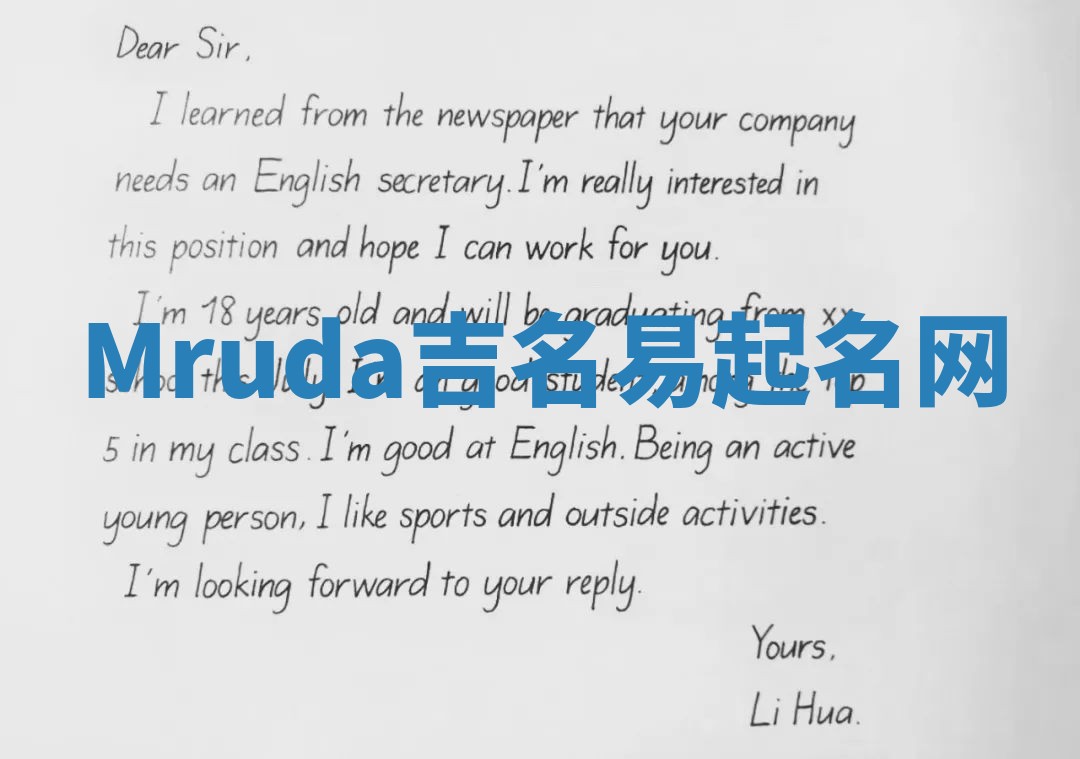 Dear Sir,
I learned from the newspaper that your company
needs an English secretary. I'm really interested in
this position and hope I can work for you.
I'm 18 years old and will be graduating from xx
Mruda吉名易起名网
school this July. I'm a good student among the Top
5 in my class. I'm good at English. Being an active
young person, I like sports and outside activities.
I'm looking forward to your reply.
Yours,
Li Hua.